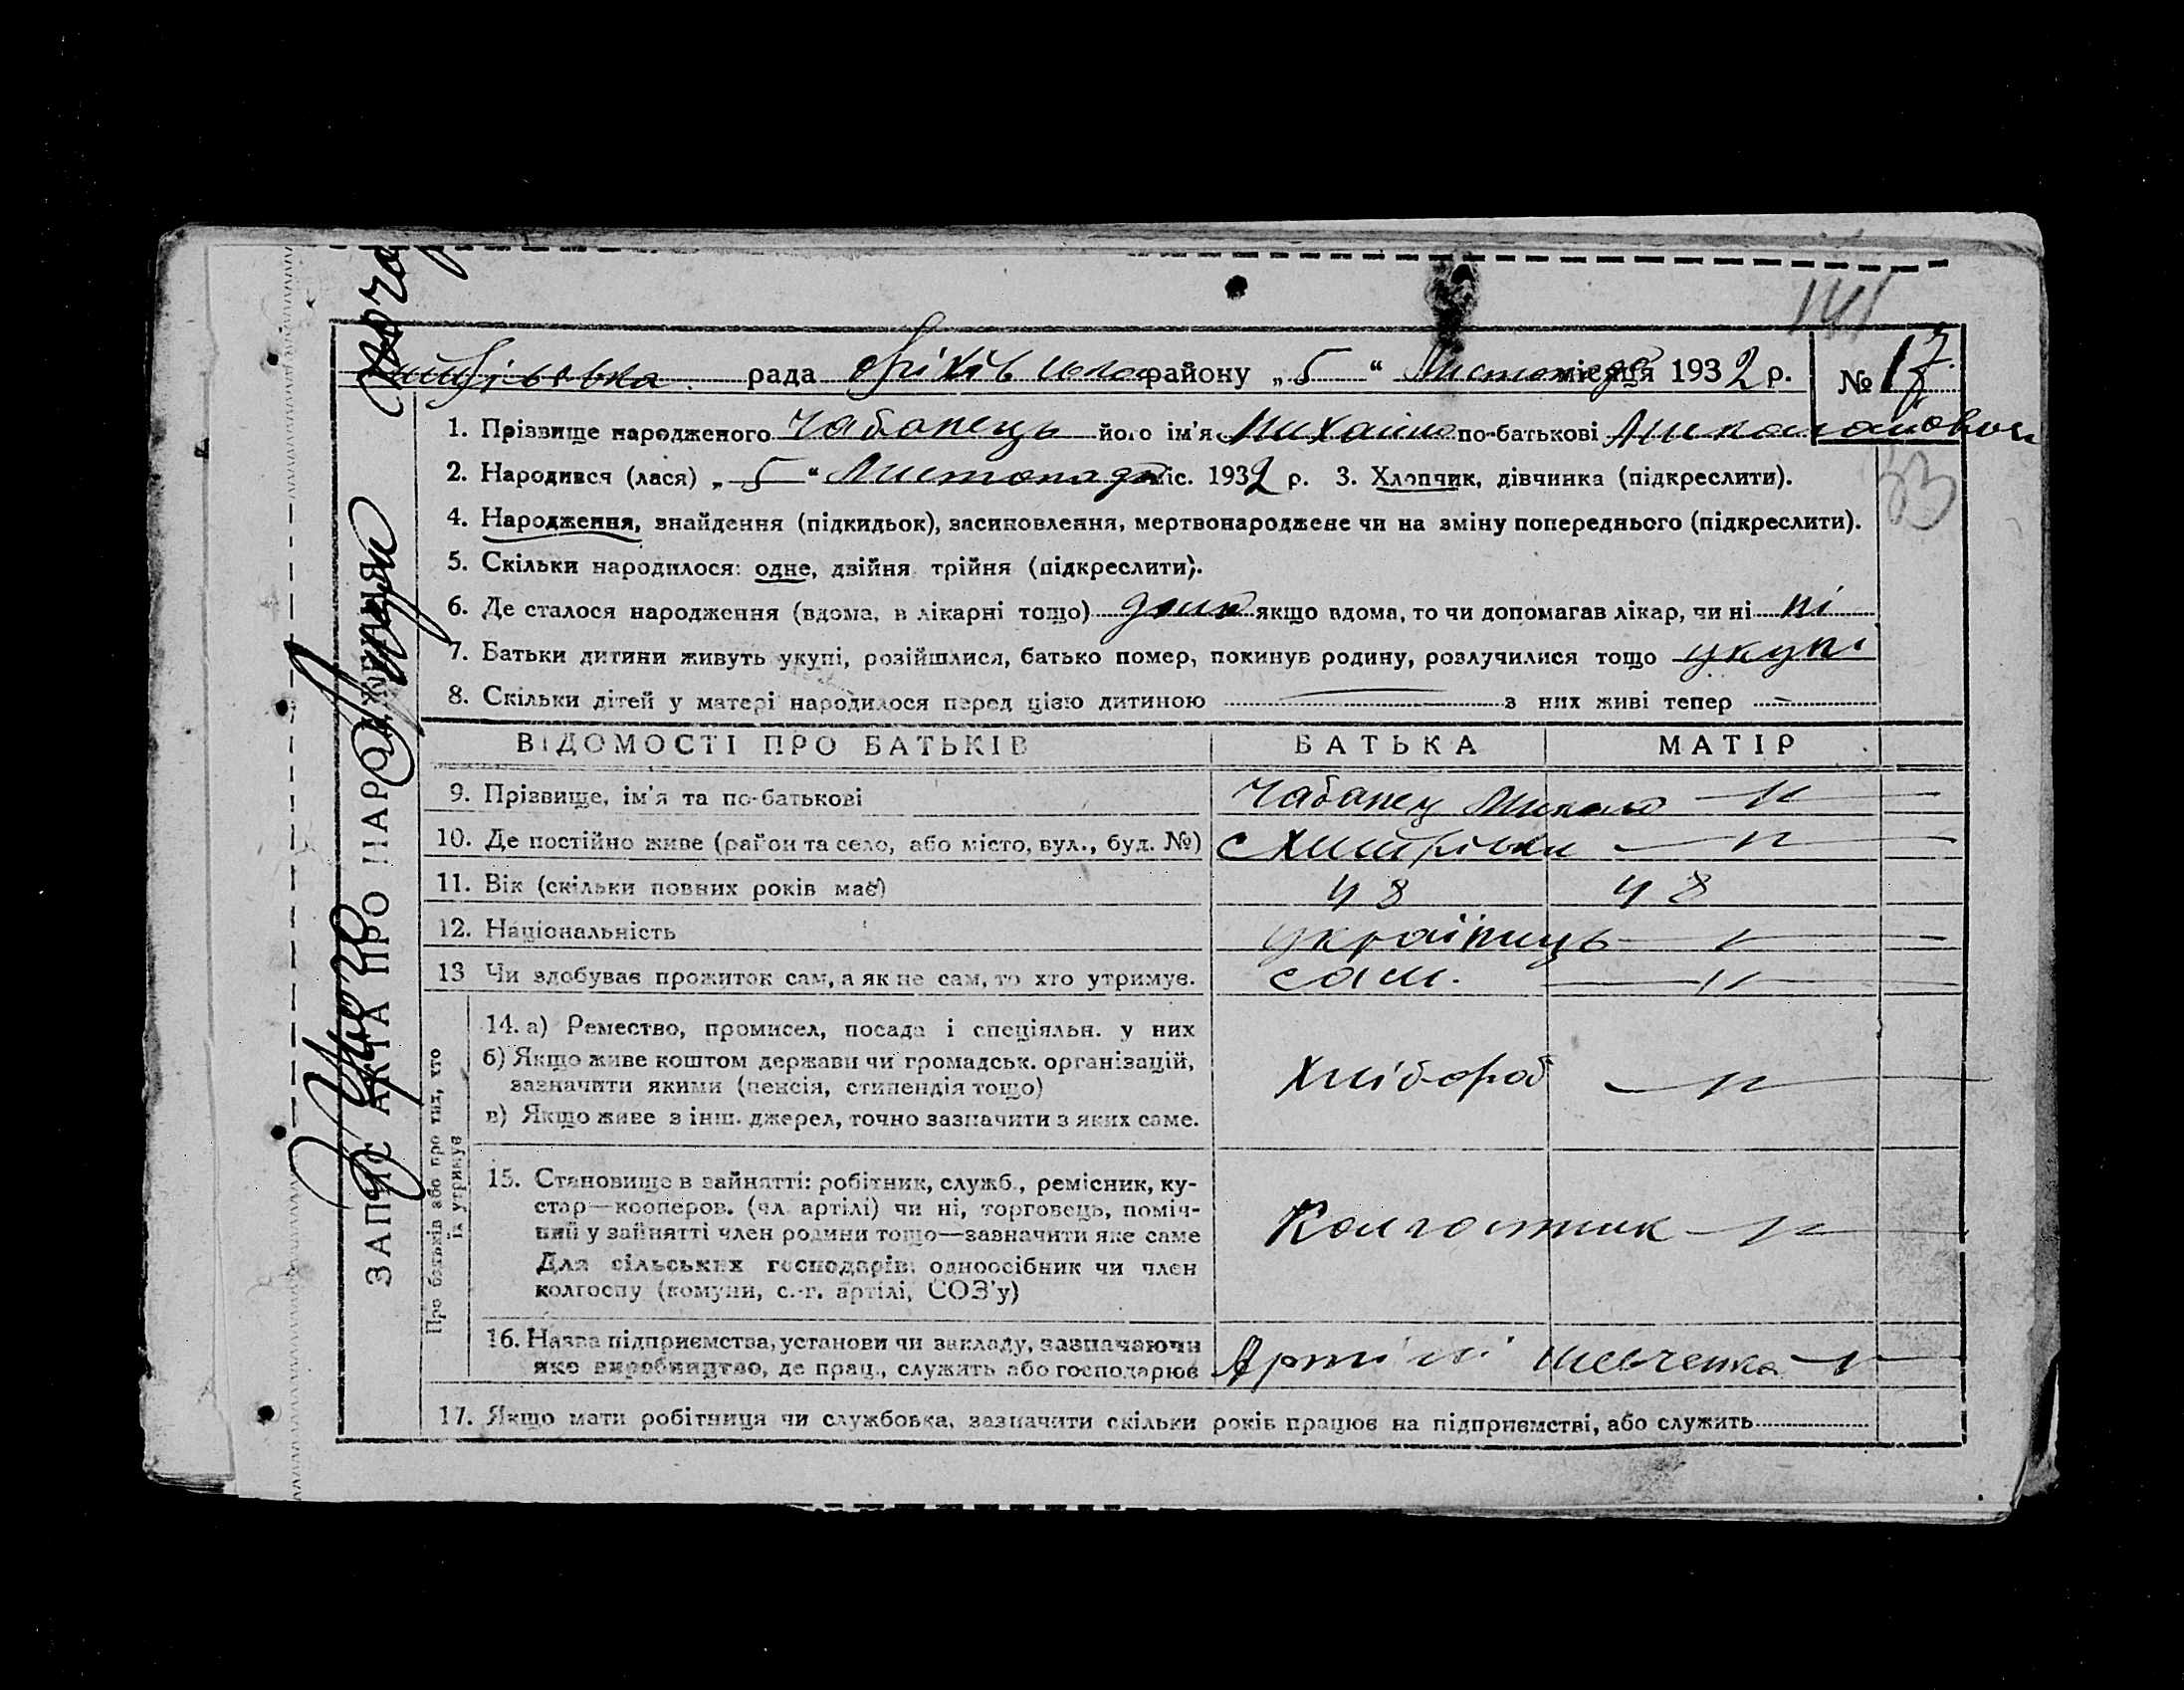 141
рада Оріхівського району „ 5 “ Листопада місяця 1932 р. № 17
1. Прізвище народженого Чабанець його ім'я Михайло по-батькові Миколайович
2. Народився (лася) „ 5 “ Листопада міс. 1932 р. 3. Хлопчик, дівчинка (підкреслити).
33
4. Народження, знайдення (підкидьок), засиновлення, мертвонароджене чи на зміну попереднього (підкреслити).
5. Скільки народилося: одне, двійня трійня (підкреслити).
6. Де сталося народження (вдома, в лікарні тощо) дома якщо вдома, то чи допомагав лікар, чи ні ні
7. Батьки дитини живуть укупі, розійшлися, батько помер, покинув родину, розлучилися тощо укупі
8. Скільки дітей у матері народилося перед цією дитиною — з них живі тепер —
ВІДОМОСТІ ПРО БАТЬКІВ БАТЬКА МАТІР
9. Прізвище, ім'я та по-батькові Чабанец Микола — „ —
10. Де постійно живе (район та село, або місто, вул., буд. №) с — „ —
11. Вік (скільки повних років має) 48 48
12. Національність українець — „ —
13 Чи здобуває прожиток сам, а як не сам, то хто утримує. сам. — „ —
14. а) Ремество, промисел, посада і спеціяльн. у них
б) Якщо живе коштом держави чи громадськ. організацій,
зазначити якими (пенсія, стипендія тощо) Хлібороб — „ —
в) Якщо живе з інш. джерел, точно зазначити з яких саме.
15. Становище в зайнятті: робітник, служб., ремісник, ку-
стар—кооперов. (чл. артілі) чи ні, торговець, поміч-
ний у зайнятті член родини тощо—зазначити яке саме Колгостник — „ —
Для сільських господарів: одноосібник чи член
колгоспу (комуни, с.-г. артілі, СОЗ'у)
16. Назва підприємства, установи чи закладу, зазначаючи
яке виробництво, де прац., служить або господарює Артілі Шевченка — „ —
17. Якщо мати робітниця чи службовка, зазначити скільки років працює на підприємстві, або служить
ЗАПИС АКТА ПРО НАРОДЖЕННЯ
Про батьків або про тих, хто
їх утримує